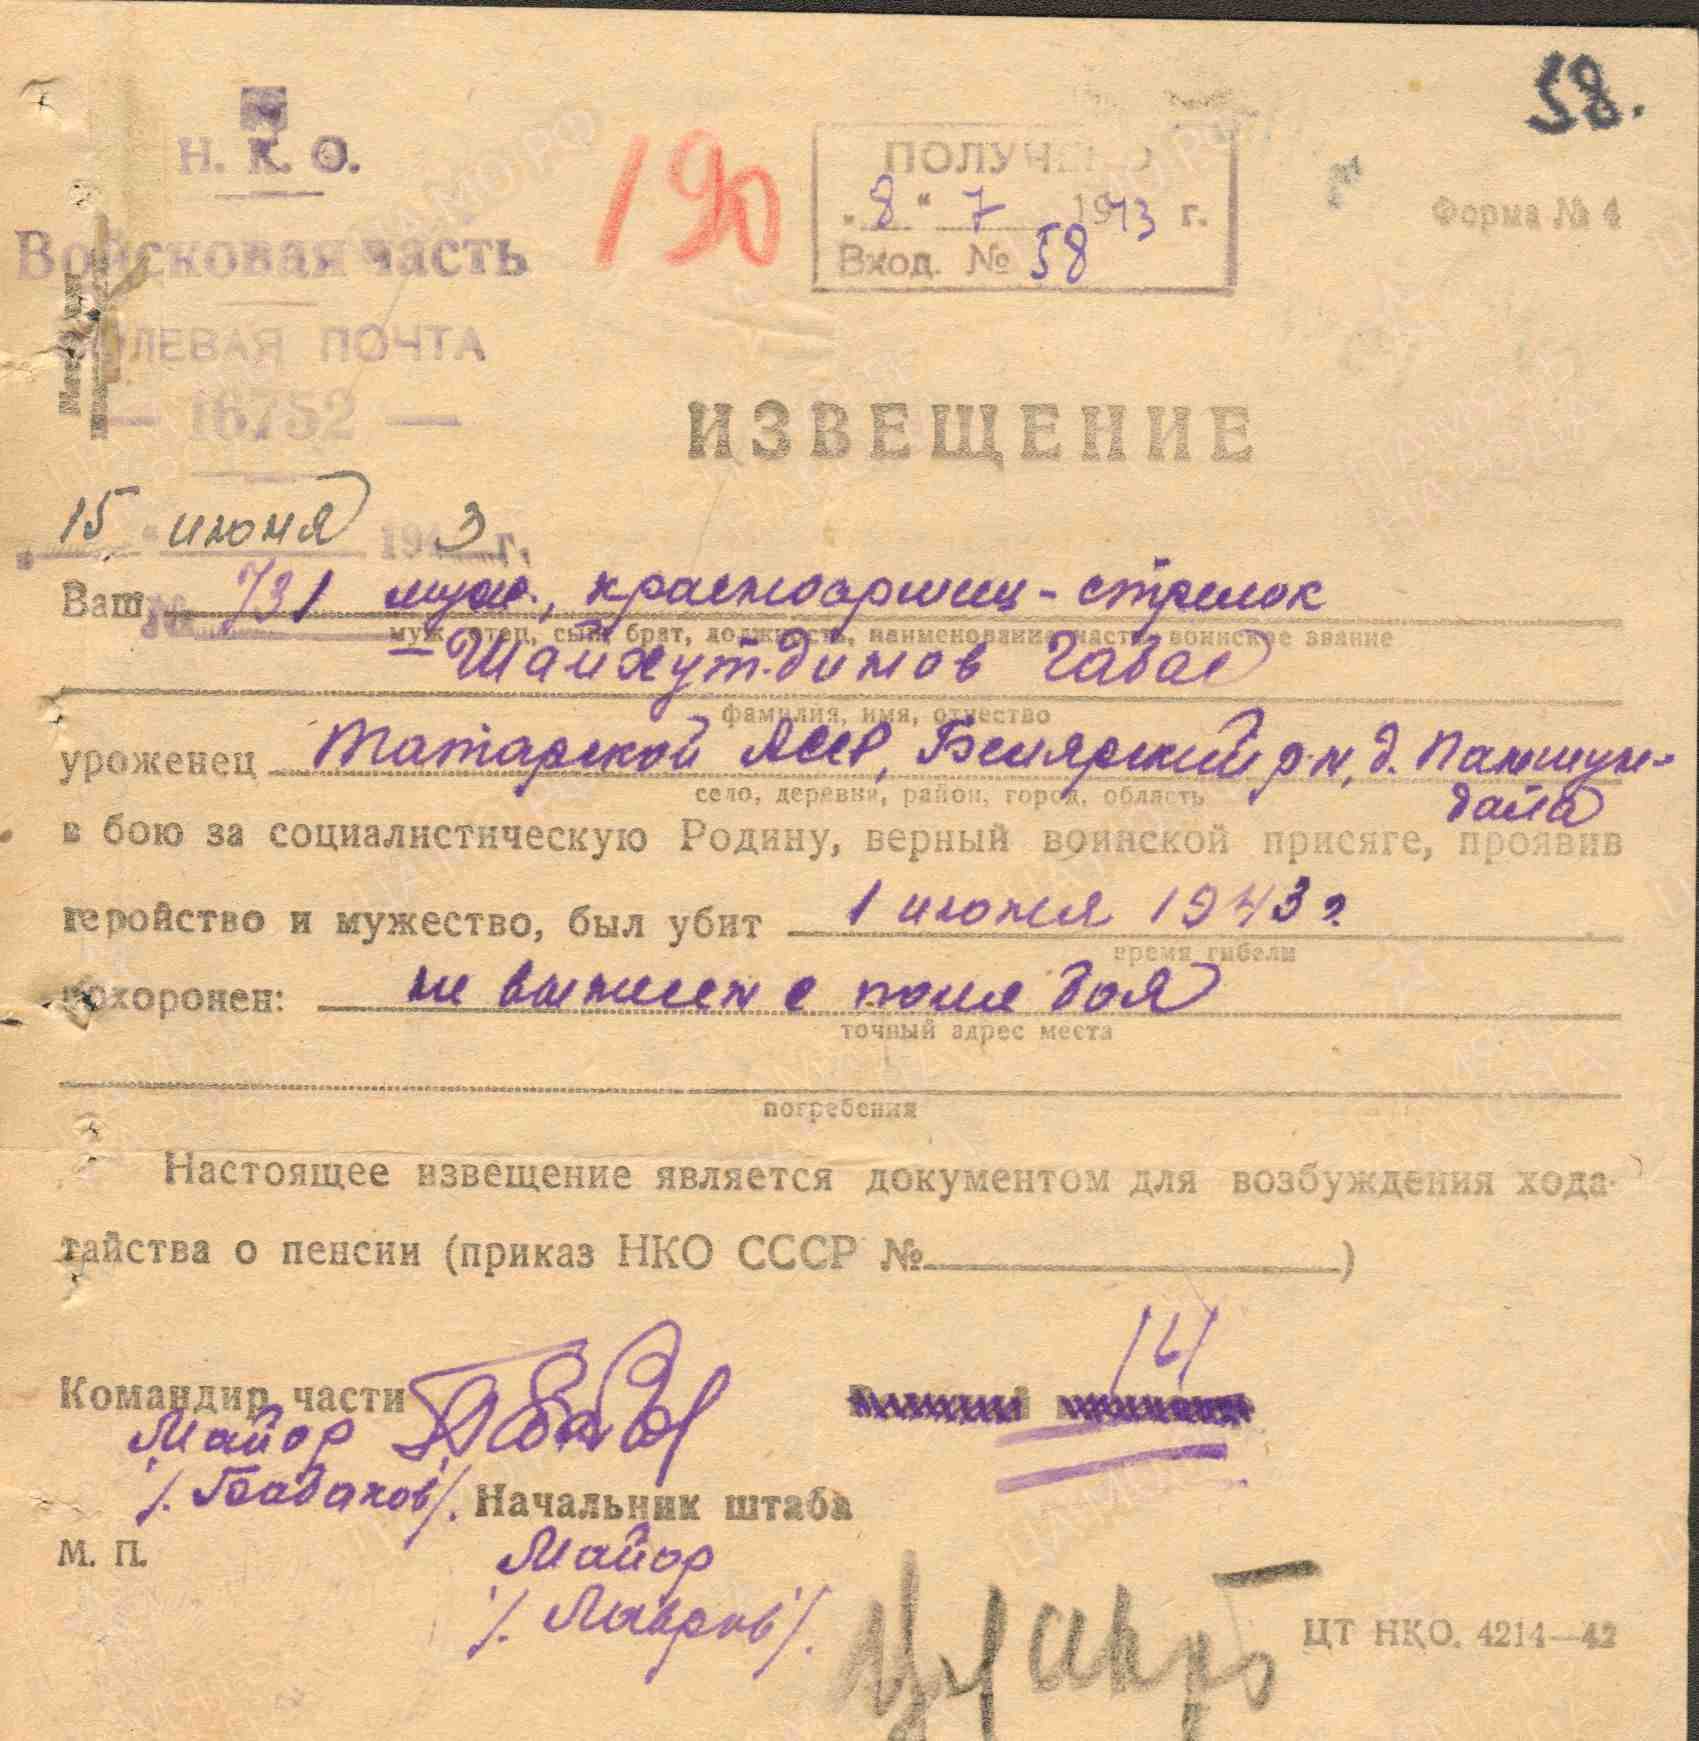 58.
Н. К. О.
Войсковая часть
ПОЛЕВАЯ ПОЧТА
— 16752 —
190
ПОЛУЧЕНО
„8“ 7 1943 г.
Вход. № 58
Форма № 4
ИЗВЕЩЕНИЕ
„15“ июня 1943 г.
Ваш № 731 муж, красноармиец-стрелок
муж, отец, сын, брат, должность, наименование части, воинское звание
Шайхутдинов Габас
фамилия, имя, отчество
уроженец Татарской АССР, Билярский р-н, д.
село, деревня, район, город, область
в бою за социалистическую Родину, верный воинской присяге, проявив
геройство и мужество, был убит 1 июня 1943 г
время гибели
похоронен: не вынесен с поля боя
точный адрес места
погребения
Настоящее извещение является документом для возбуждения хода-
тайства о пенсии (приказ НКО СССР № )
Командир части
Майор
/. Бабаков/.
Начальник штаба
М. П.
Майор
/. Лавров/.
ЦТ НКО. 4214—42